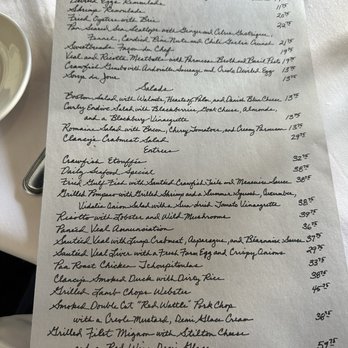 Deviled Eggs Remoulade
Shrimp Remoulade 11
Fried Oysters with Brie 20 75
Pan Seared Sea Scallops with Ginger and Citrus Chutney, 22 75
Fennel, Candied Pine Nuts and Chili Garlic Crunch 21 75
Sweetbreads Façon du Chef 19 75
Veal and Ricotta Meatballs with Parmesan Broth and Basil Pesto 19 75
Crawfish with Andouille Sausage, and Creole Deviled Egg 13 75
Soup du Jour
Salads
Boston Salad with Walnuts, Hearts of Palm and Danish Blue Cheese 13 75
Curly Endive Salad with Blackberries, Goat Cheese, Almonds,
and a Blackberry Vinaigrette 13 75
Romaine Salad with Bacon, Cherry Tomatoes, and Creamy Parmesan 13 75
Clancy's Crabmeat Salad 29 75
Entrées
Crawfish Etouffée 32 75
Daily Seafood Special 38 75
Fried Gulf Fish with Sautéed Crawfish Tails and Meunière Sauce 38 75
Grilled Pompano with Grilled Shrimp and a Summer Squash, Cucumber
Vidalia Onion Salad with a Sun-dried Tomato Vinaigrette 38 75
Risotto with Lobster and Wild Mushrooms 39 75
Panéed Veal Annunciation 37 75
Sautéed Veal with Lump Crabmeat, Asparagus, and Béarnaise Sauce 37 75
Sautéed Veal Liver with a Fresh Farm Egg and Crispy Onions 29 75
Pan Roast Chicken Tchoupitoulas 33 75
Clancy's Smoked Duck with Dirty Rice 38 75
Grilled Lamb Chops Webster 45 75
Smoked Double Cut "Red Wattle" Pork Chop
with a Creole Mustard, Demi Glace Cream 36 75
Grilled Filet Mignon with Stilton Cheese
and a Red Wine Demi Glace 59 75